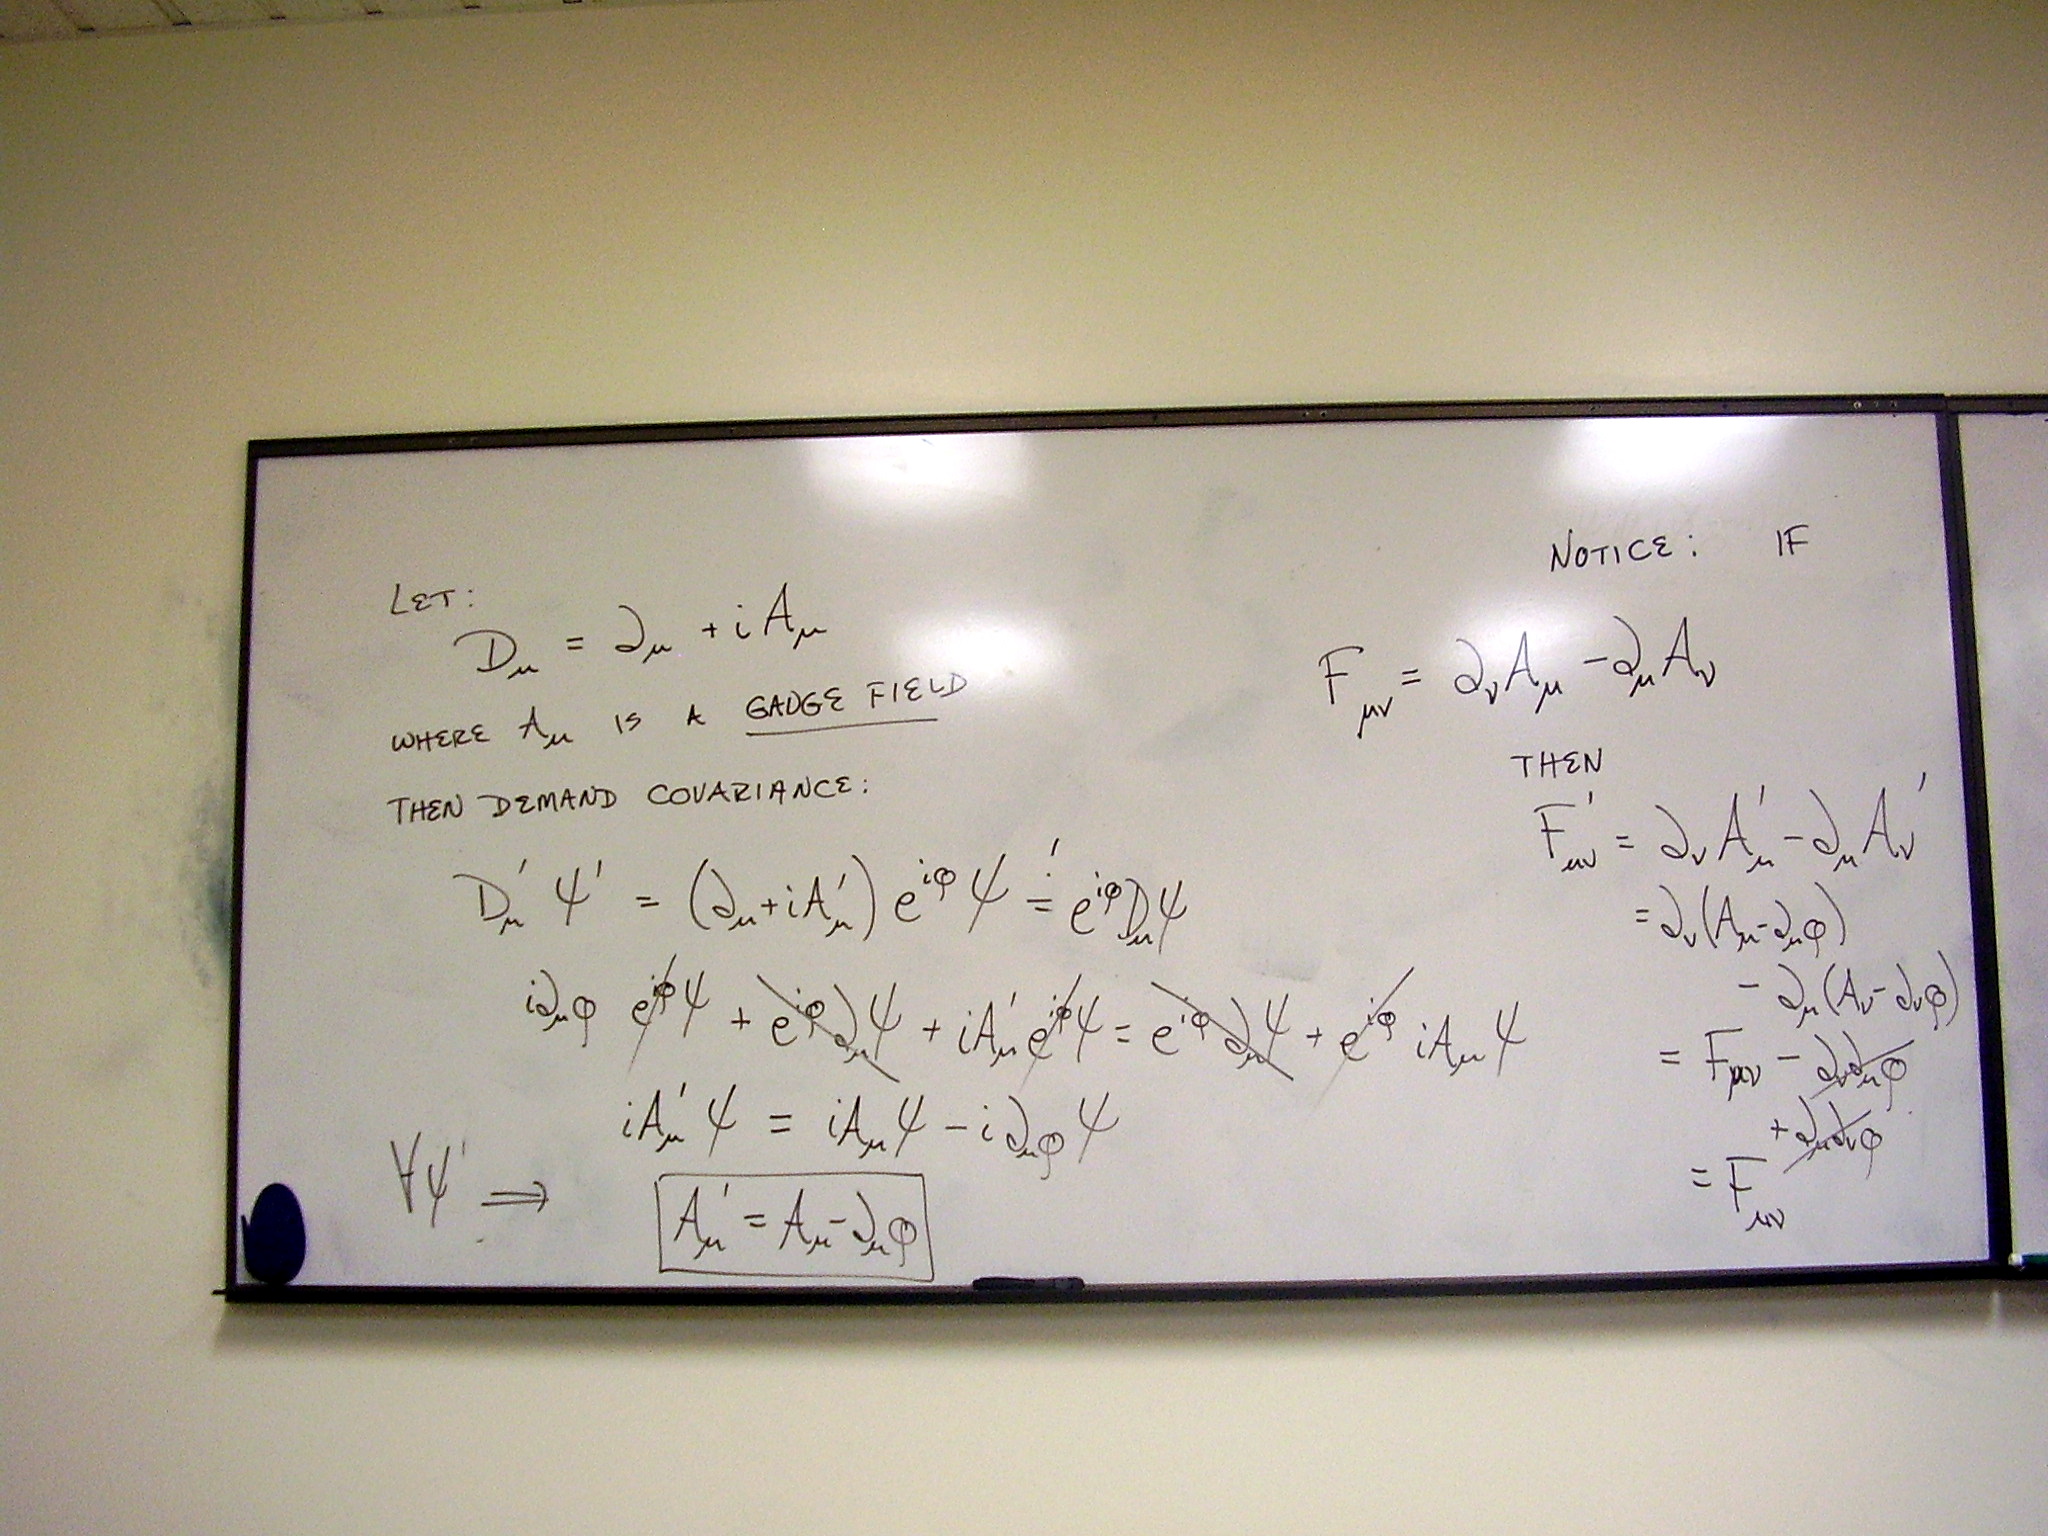 LET:
Dμ = ∂μ + iAμ
WHERE Aμ IS A GAUGE FIELD
THEN DEMAND COVARIANCE:
Dμ′ψ′ = (∂μ+iAμ′) e^{iφ} ψ ≐′ e^{iφ}Dμψ
i∂μφ e^{iφ}ψ + e^{iφ}∂μψ + iAμ′e^{iφ}ψ = e^{iφ}∂μψ + e^{iφ} iAμψ
iAμ′ψ = iAμψ - i∂μφψ
∀ψ′ ⟹ Aμ′ = Aμ - ∂μφ
NOTICE: IF
Fμν = ∂νAμ - ∂μAν
THEN
Fμν′ = ∂νAμ′ - ∂μAν′
= ∂ν(Aμ - ∂μφ)
- ∂μ(Aν - ∂νφ)
= Fμν - ∂ν∂μφ
+ ∂μ∂νφ
= Fμν